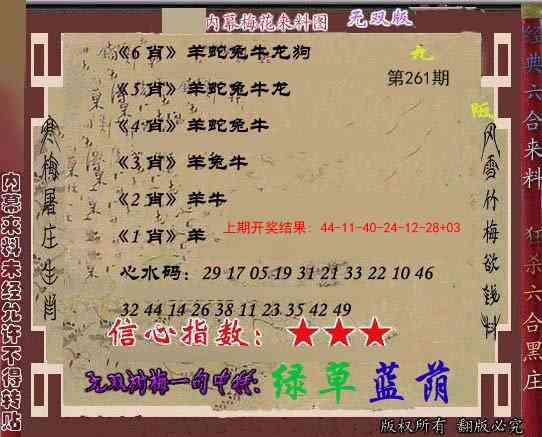 内幕梅花来料图 无双版
《6肖》羊蛇兔牛龙狗
九
第261期
《5肖》羊蛇兔牛龙
阪
《4肖》羊蛇兔牛
《3肖》羊兔牛
《2肖》羊牛
上期开奖结果：44-11-40-24-12-28+03
《1肖》羊
心水码：29 17 05 19 31 21 33 22 10 46
32 44 14 26 38 11 23 35 42 49
信心指数：★★★
无双浏梅一句中特：绿草蓝荫
寒梅屠庄生肖
风雪竹梅欲钱料
内幕来料未经允许不得转贴
经典六合来料
狂杀六合黑庄
版权所有 翻版必究